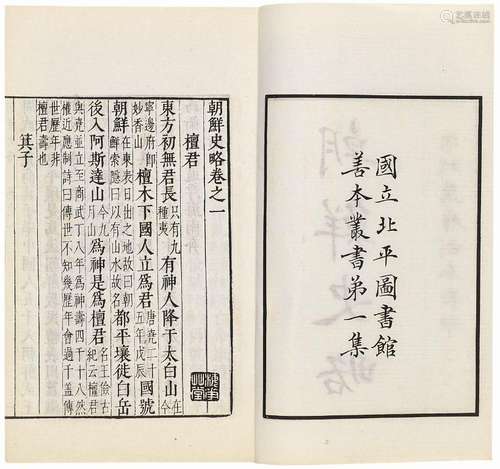 國立北平圖書館
善本叢書第一集
朝鮮史略卷之一
檀君
東方初無君長只有九種夷有神人降于太白山在今
寧邊府即妙香山檀木下國人立爲君唐堯二十五年戊辰國號
朝鮮在東表日出之地故曰朝鮮索隱曰以有山水故名都平壤徙白岳
後入阿斯達山今九月山爲神是爲檀君名王儉古紀云檀君
與堯並立至商武丁八年爲神壽四千十八然
權近應制詩曰傳世不知幾歷年會過千蓋傳
世歷年非
檀君壽也
箕子